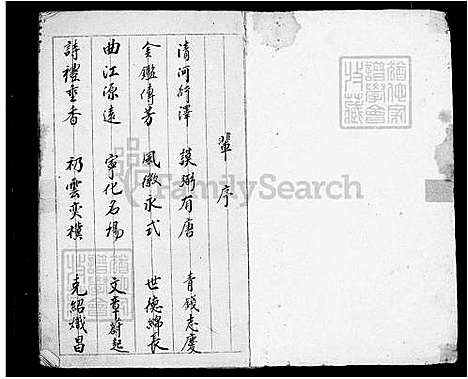 輩序
清河衍澤 謨弼有唐 青錢志慶
金鑑傳芳 風徽永式 世德綿長
曲江源遠 寧化名場 文章丕蔚起
詩禮垂香 礽雲奕襈 克紹熾昌
FamilySearch
譜學會